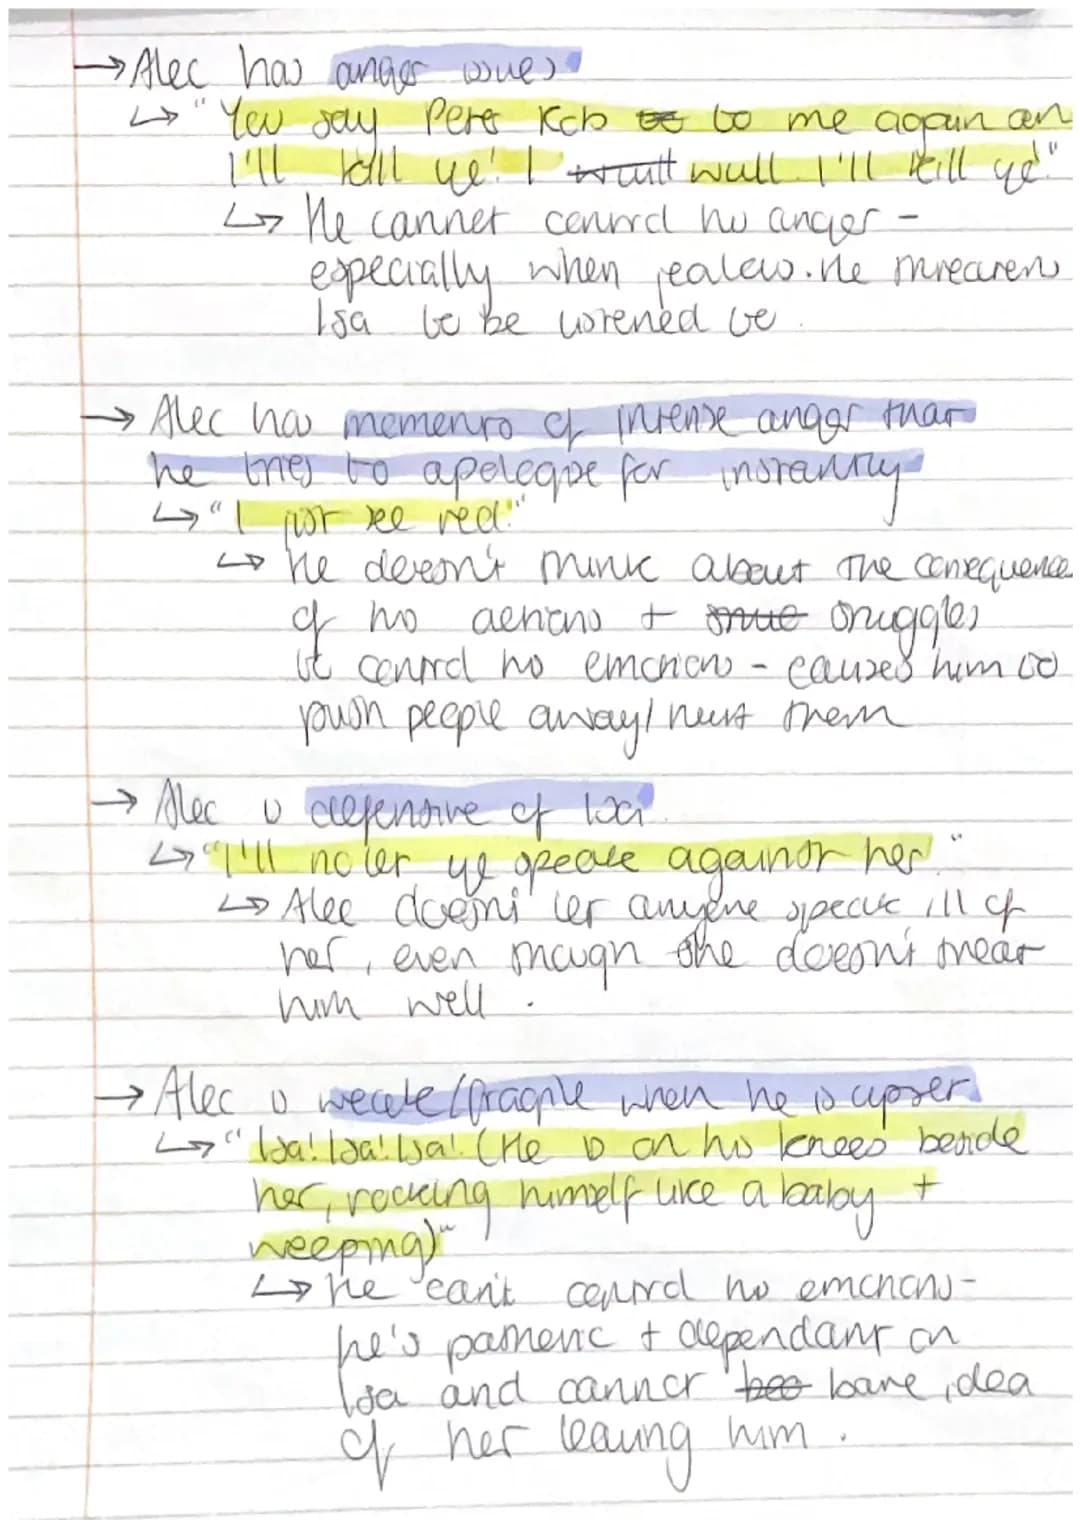 → Alec has anger issues
↳ "You say Peter Rob to to me again an
I'll kill ye! I wull wull. I'll kill ye."
↳ He cannot control his anger -
especially when jealous. He threatens
Isa to be listened to.
→ Alec has moments of intense anger that
he tries to apologise for instantly
↳ "I just see red."
↳ He doesn't think about the consequence
of his actions + strue struggles
to control his emotions - causes him to
push people away/ hurt them
→ Alec is defensive of Isa
↳ "I'll no let ye speak against her."
↳ Alec doesn't let anyone speak ill of
her, even though she doesn't treat
him well.
→ Alec is weak/fragile when he is upset
↳ "Isa! Isa! Isa! (He is on his knees beside
her, rocking himself like a baby +
weeping)"
↳ He can't control his emotions -
he's pathetic + dependant on
Isa and cannot bea bare idea
of her leaving him.